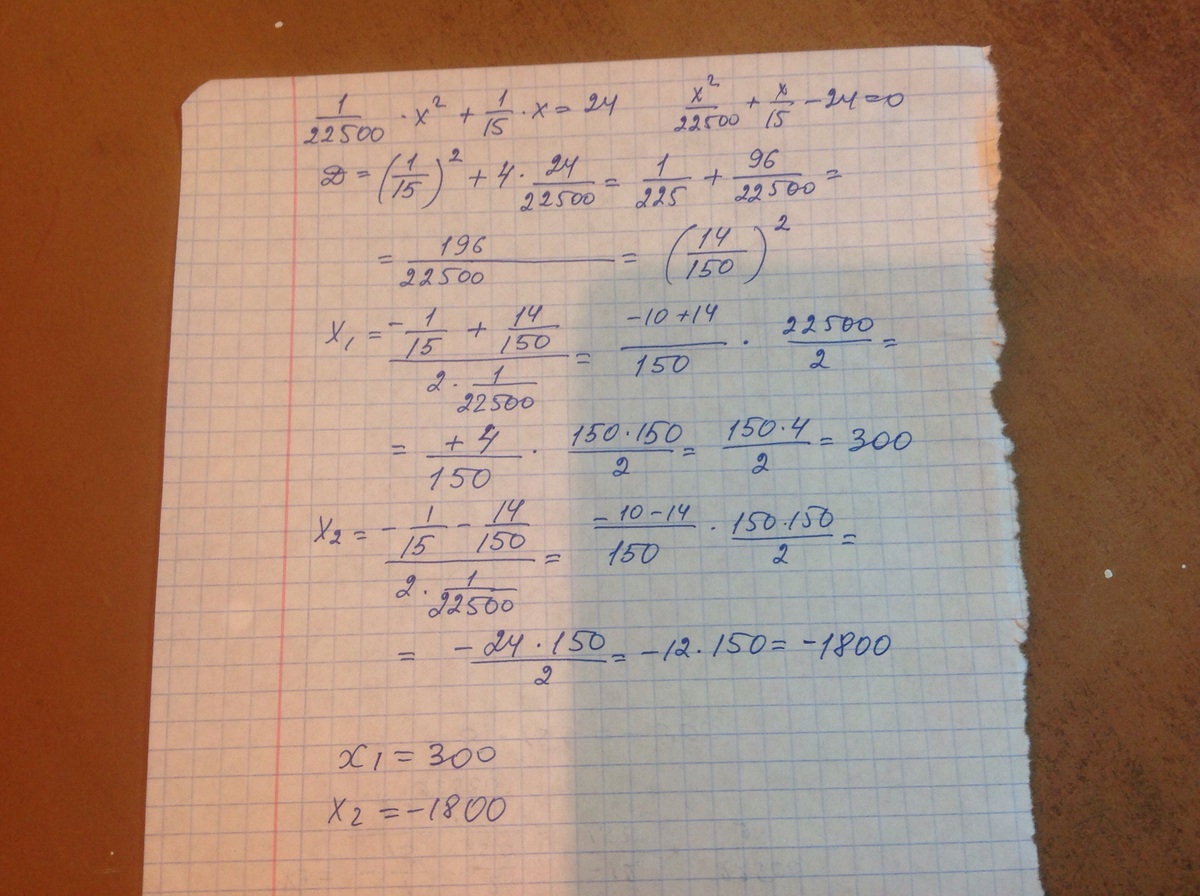 1/22500 · x² + 1/15 · x = 24    x²/22500 + x/15 − 24 = 0
D = (1/15)² + 4 · 24/22500 = 1/225 + 96/22500 =
= 196/22500 = (14/150)²
x₁ = (−1/15 + 14/150)/(2 · 1/22500) = (−10+14)/150 · 22500/2 =
= +4/150 · 150·150/2 = 150·4/2 = 300
x₂ = (−1/15 − 14/150)/(2 · 1/22500) = (−10−14)/150 · 150·150/2 =
= −24·150/2 = −12·150 = −1800
x₁ = 300
x₂ = −1800